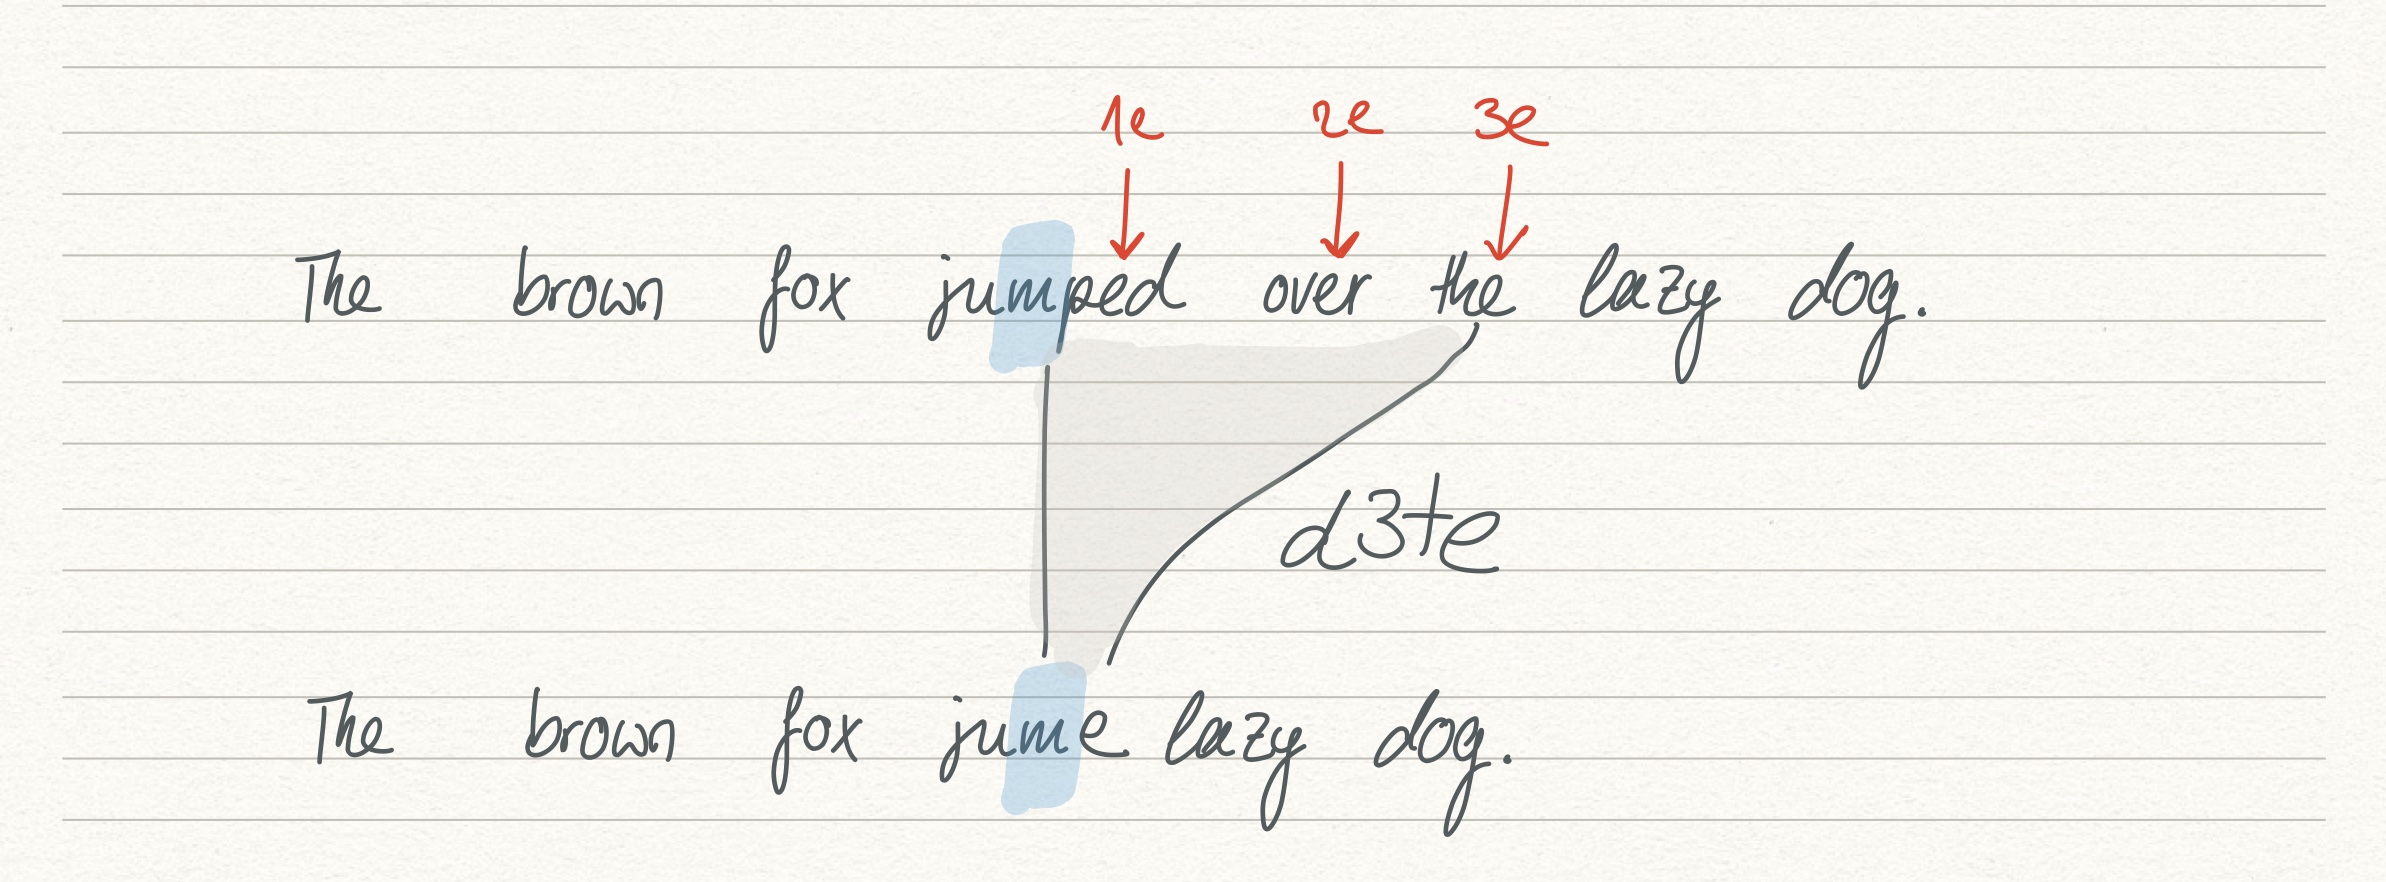 1e 2e 3e
The brown fox jumped over the lazy dog.
d3te
The brown fox jume lazy dog.